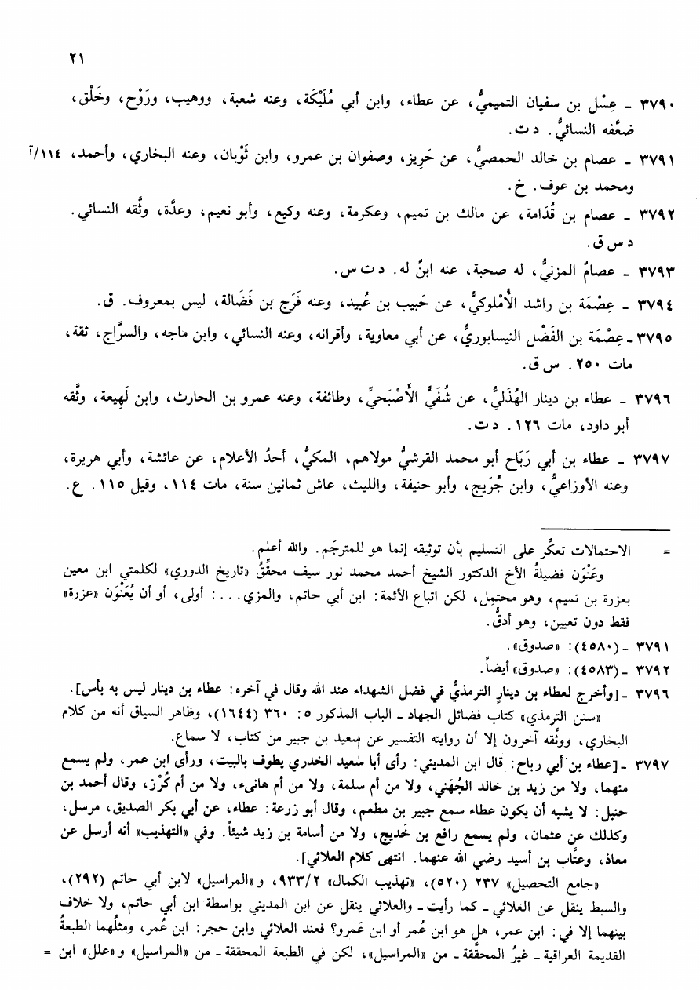 ٢١
٣٧٩٠ ـ عِسْل بن سفيان التميميُّ، عن عطاء، وابن أبي مُلَيْكَة، وعنه شعبة، ووهيب، ورَوْح، وخَلْق،
ضعَّفه النسائيُّ. د ت.
٣٧٩١ ـ عصام بن خالد الحمصيُّ، عن حَرِيز، وصفوان بن عمرو، وابن ثَوْبان، وعنه البخاري، وأحمد، ١١٤/آ
ومحمد بن عوف. خ.
٣٧٩٢ ـ عصام بن قُدَامة، عن مالك بن نمير، وعكرمة، وعنه وكيع، وأبو نعيم، وعدَّة، وثَّقه النسائي.
د س ق.
٣٧٩٣ ـ عصامُ المزنيُّ، له صحبة، عنه ابنٌ له. د ت س.
٣٧٩٤ ـ عِصْمة بن راشد الأُمْلوكيُّ، عن حَبيب بن عُبيد، وعنه فَرَج بن فَضَالة، ليس بمعروف. ق.
٣٧٩٥ ـ عِصْمَة بن الفَضْل النيسابوريُّ، عن أبي معاوية، وأقرانه، وعنه النسائي، وابن ماجه، والسرَّاج، ثقة،
مات ٢٥٠. س ق.
٣٧٩٦ ـ عطاء بن دينار الهُذَليُّ، عن شُفَيٍّ الأَصْبَحيِّ، وطائفة، وعنه عمرو بن الحارث، وابن لَهِيعة، وثَّقه
أبو داود، مات ١٢٦. د ت.
٣٧٩٧ ـ عطاء بن أبي رَبَاح أبو محمد القرشيُّ مولاهم، المكيُّ، أحدُ الأعلام، عن عائشة، وأبي هريرة،
وعنه الأوزاعيُّ، وابن جُرَيج، وأبو حنيفة، والليث، عاش ثمانين سنة، مات ١١٤، وقيل ١١٥. ع.
= الاحتمالات تعكِّر على التسليم بأن توثيقه إنما هو للمترجَم. والله أعلم.
وعَنْوَن فضيلةُ الأخ الدكتور الشيخ أحمد محمد نور سيف محقِّقُ «تاريخ الدوري» لكلمتي ابن معين
بعزرة بن تميم، وهو محتمِل، لكن اتباع الأئمة: ابن أبي حاتم، والمزي...: أولى، أو أن يُعَنْوَن «عزرة»
فقط دون تعيين، وهو أدقُّ.
٣٧٩١ ـ (٤٥٨٠): «صدوق».
٣٧٩٢ ـ (٤٥٨٣): «صدوق» أيضاً.
٣٧٩٦ ـ [وأخرج لعطاء بن دينارٍ الترمذيُّ في فضل الشهداء عند الله وقال في آخره: عطاء بن دينار ليس به بأس].
«سنن الترمذي» كتاب فضائل الجهاد ـ الباب المذكور ٥: ٣٦٠ (١٦٤٤)، وظاهر السياق أنه من كلام
البخاري، ووثَّقه آخرون إلا أن روايته التفسير عن سعيد بن جبير من كتاب، لا سماع.
٣٧٩٧ ـ [عطاء بن أبي رباح: قال ابن المديني: رأى أبا سعيد الخدري يطوف بالبيت، ورأى ابن عمر، ولم يسمع
منهما، ولا من زيد بن خالد الجُهَني، ولا من أم سلمة، ولا من أم هانىء، ولا من أم كُرْز، وقال أحمد بن
حنبل: لا يشبه أن يكون عطاء سمع جبير بن مطعم، وقال أبو زرعة: عطاء، عن أبي بكر الصديق، مرسل،
وكذلك عن عثمان، ولم يسمع رافع بن خَديج، ولا من أسامة بن زيد شيئاً. وفي «التهذيب» أنه أرسل عن
معاذ، وعتَّاب بن أسيد رضي الله عنهما. انتهى كلام العلائي].
«جامع التحصيل» ٢٣٧ (٥٢٠)، «تهذيب الكمال» ٩٣٣/٢، و«المراسيل» لابن أبي حاتم (٢٩٢)،
والسبط ينقل عن العلائي ـ كما رأيت ـ والعلائي ينقل عن ابن المديني بواسطة ابن أبي حاتم، ولا خلاف
بينهما إلا في: ابن عمر، هل هو ابن عُمر أو ابن عَمرو؟ فعند العلائي وابن حجر: ابن عُمر، ومثلُهما الطبعةُ
القديمة العراقية ـ غيرُ المحقَّقة ـ من «المراسيل»، لكن في الطبعة المحققة ـ من «المراسيل» و«علل» ابن =